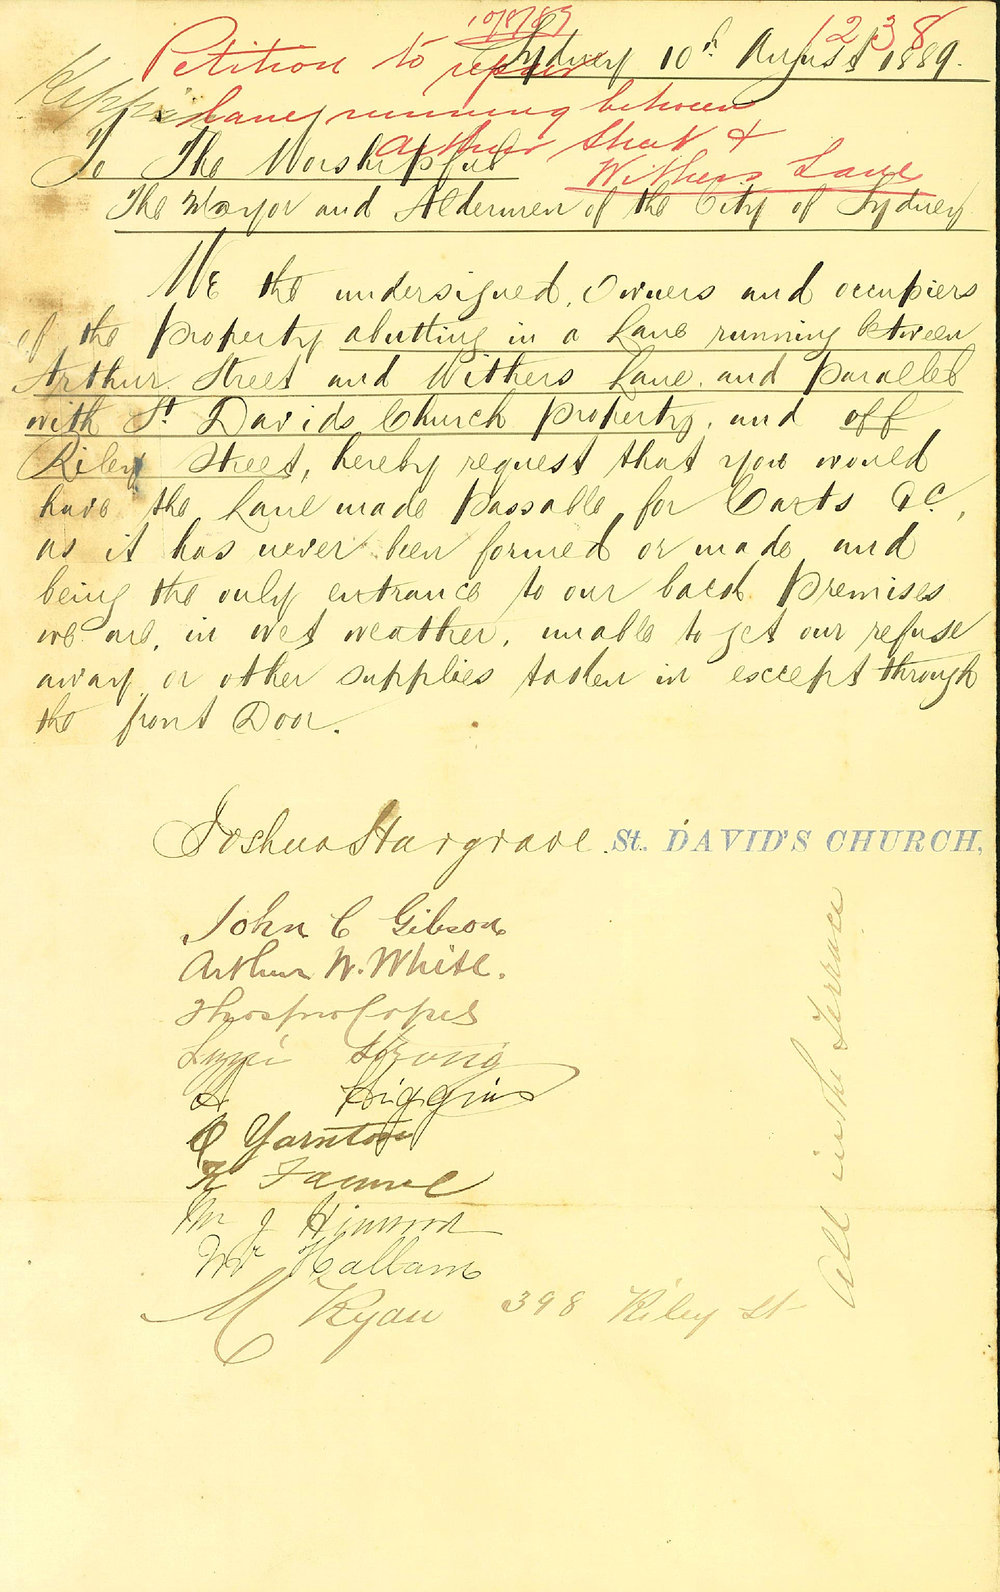 10/8/89
1238
Petition to repair
Sydney 10th August 1889.
Lane running between
Arthur Street &
Withers Lane
To The Worshipful
The Mayor and Aldermen of the City of Sydney
We the undersigned, Owners and occupiers
of the Property abutting in a Lane running between
Arthur Street and Withers Lane, and Parallel
with St Davids Church property, and off
Riley Street, hereby request that you would
have the Lane made passable for Carts &c,
as it has never been formed or made and
being the only entrance to our back Premises
we are, in wet weather, unable to get our refuse
away or other supplies taken in except through
the front Door.
Joshua Hargrave St. DAVID'S CHURCH,
John C Gibson
Arthur W. White.
Strong
Higgins
Yarnton
Mr J
Mr Hallam
M Ryan 398 Riley St
All in the Terrace